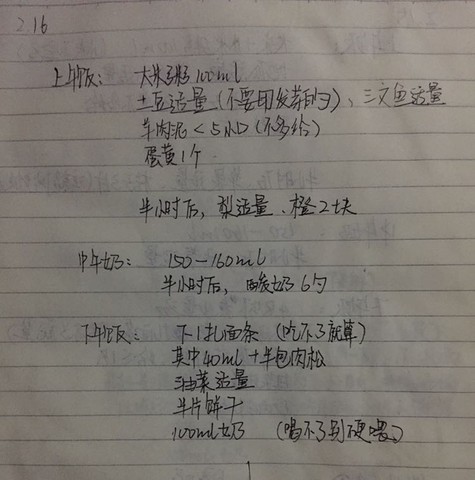 2.16
上午饭： 大米粥 100ml
土豆适量（不要用发芽的）、三文鱼适量
牛肉泥 < 5ml（不多给）
蛋黄1个
半小时后，梨适量、橙2块
中午奶： 150-160ml
半小时后，酸奶6勺
下午饭： 下1扎面条（吃不了就算）
其中40ml + 半包肉松
油菜适量
半片饼干
100ml奶 （喝不了别硬喂）